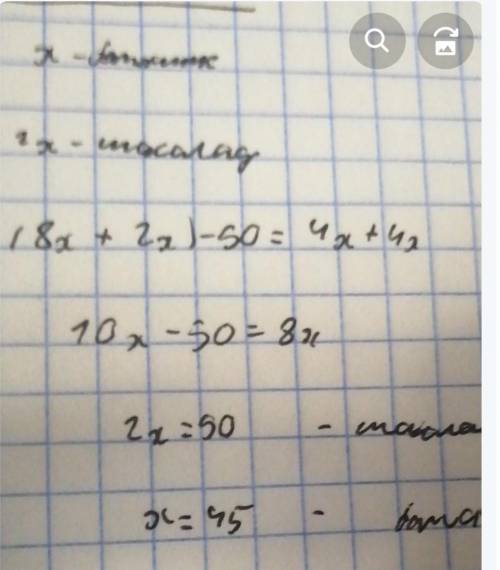 x -
2x - шоколад
(8x + 2x) - 50 = 4x + 4x
10x - 50 = 8x
2x = 50 -
x = 45 -